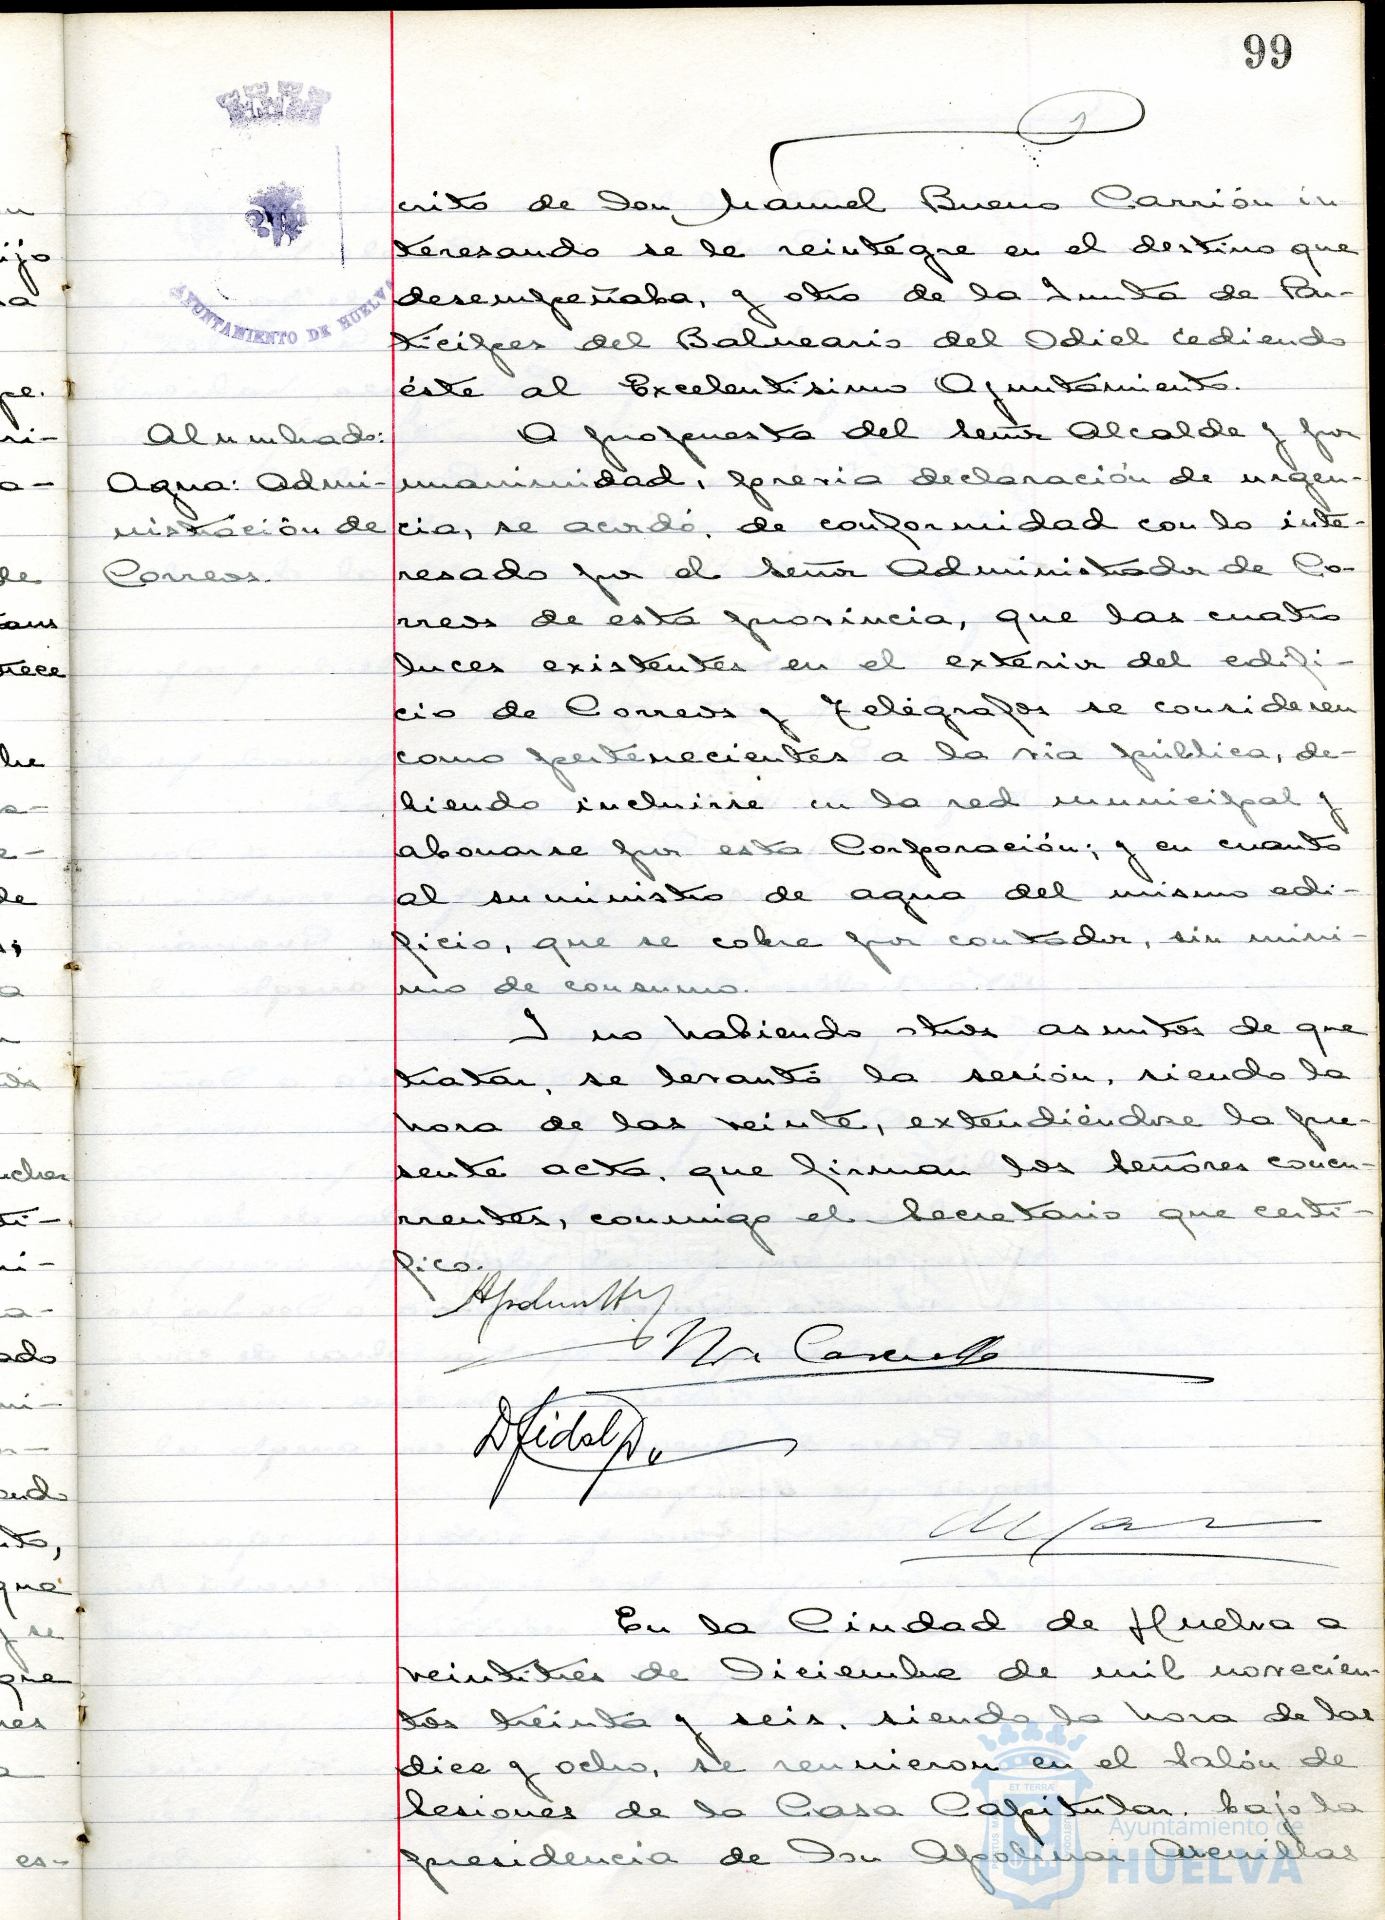 99
AYUNTAMIENTO DE HUELVA
crito de Don Manuel Bueno Carrión in
teresando se le reintegre en el destino que
desempeñaba, y otro de la Junta de Par-
tícipes del Balneario del Odiel cediendo
éste al Excelentísimo Ayuntamiento.
Alumbrado:
Agua: Admi-
nistración de
Correos.
A propuesta del Señor Alcalde y por
unanimidad, previa declaración de urgen-
cia, se acordó, de conformidad con lo inte-
resado por el Señor Administrador de Co-
rreos de esta provincia, que las cuatro
luces existentes en el exterior del edifi-
cio de Correos y Telégrafos se consideren
como pertenecientes a la vía pública, de-
biendo incluirse en la red municipal y
abonarse por esta Corporación; y en cuanto
al suministro de agua del mismo edi-
ficio, que se cobre por contador, sin míni-
mo de consumo.
Y no habiendo otros asuntos de que
tratar, se levantó la sesión, siendo la
hora de las veinte, extendiéndose la pre-
sente acta, que firman los Señores concu-
rrentes, conmigo el Secretario que certi-
fico.
En la Ciudad de Huelva a
veintitres de Diciembre de mil novecien-
tos treinta y seis, siendo la hora de las
diez y ocho, se reunieron en el Salón de
Sesiones de la Casa Capitular, bajo la
presidencia de Don Apolinar Arenillas
Ayuntamiento de
HUELVA